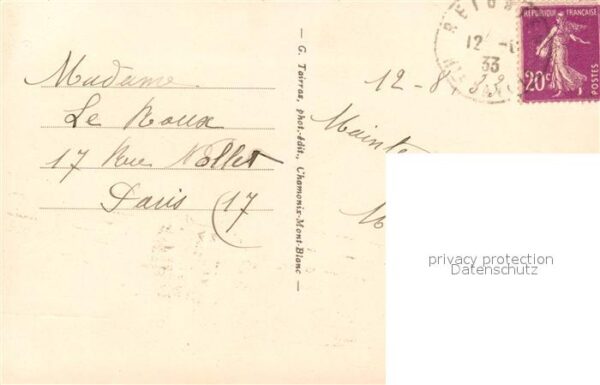 Madame
Le Roux
17 Rue Nollet
Paris (17
— G. Tairraz, phot.-édit., Chamonix-Mont-Blanc —
12-8
33
12
33
REPUBLIQUE FRANÇAISE
20c
POSTES
privacy protection
Datenschutz